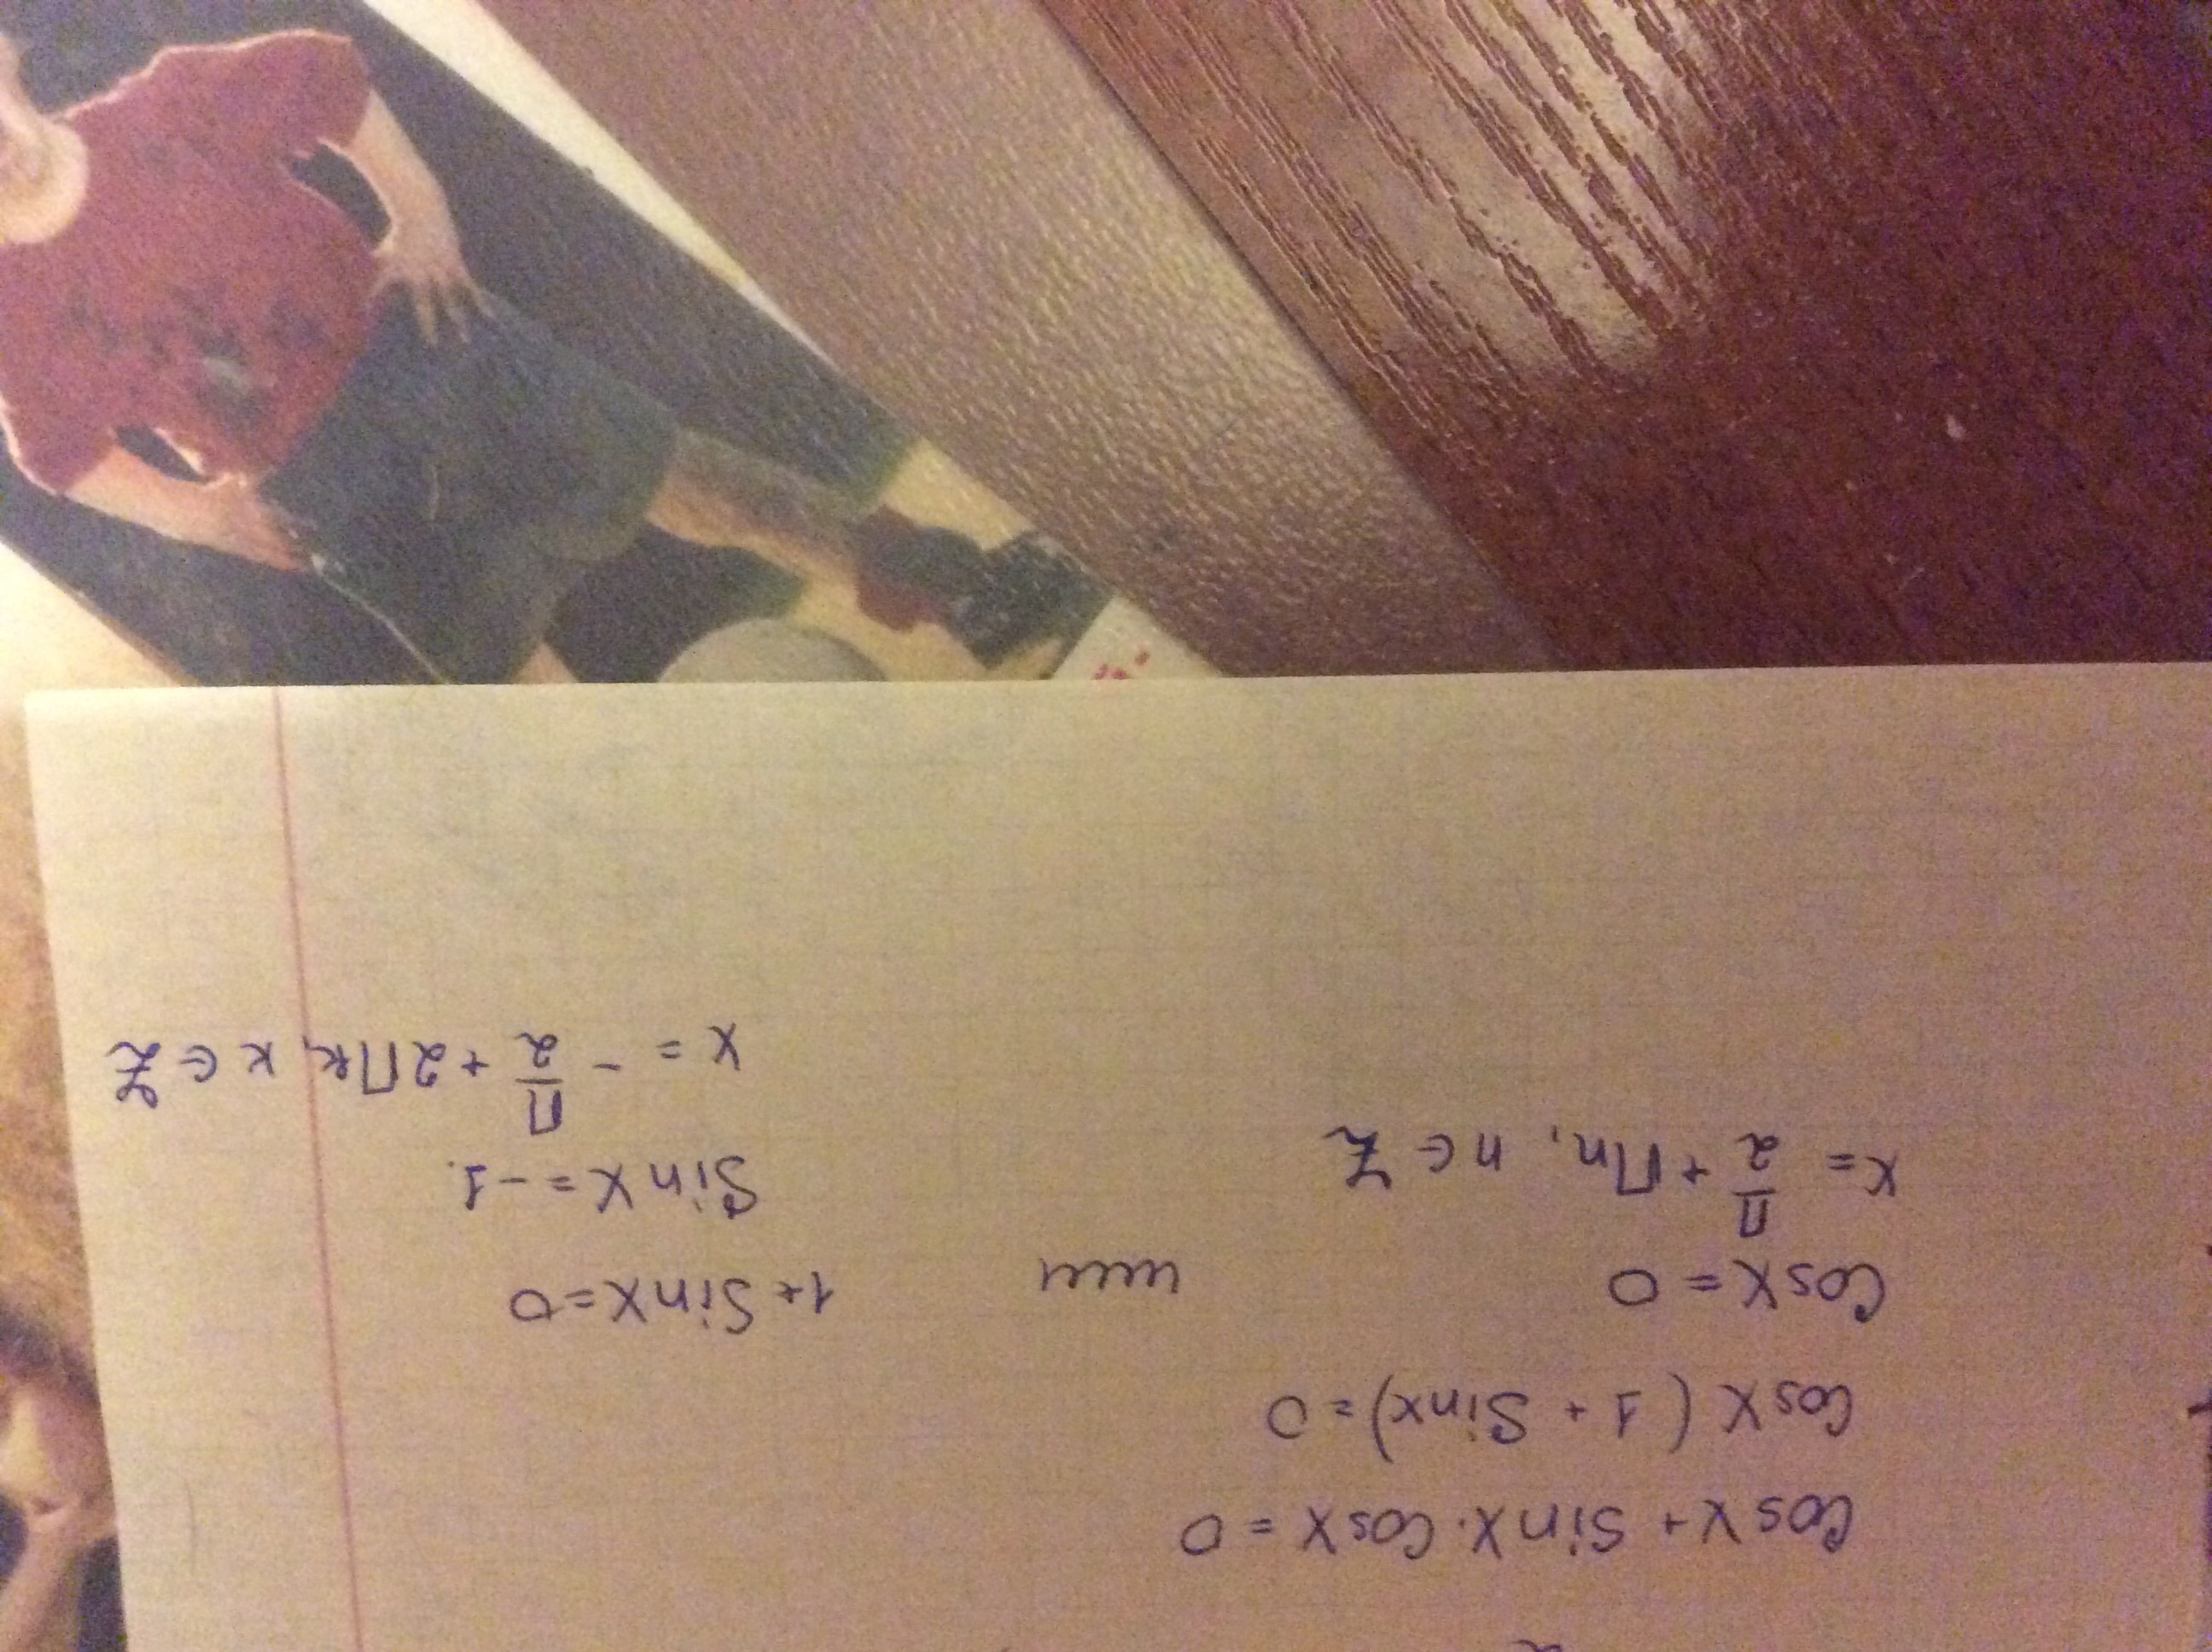 Cos x + Sin x · Cos x = 0
Cos x (1 + Sin x) = 0
Cos x = 0 или 1 + Sin x = 0
x = П/2 + Пn, n ∈ Z
Sin x = -1.
x = - П/2 + 2Пk, k ∈ Z